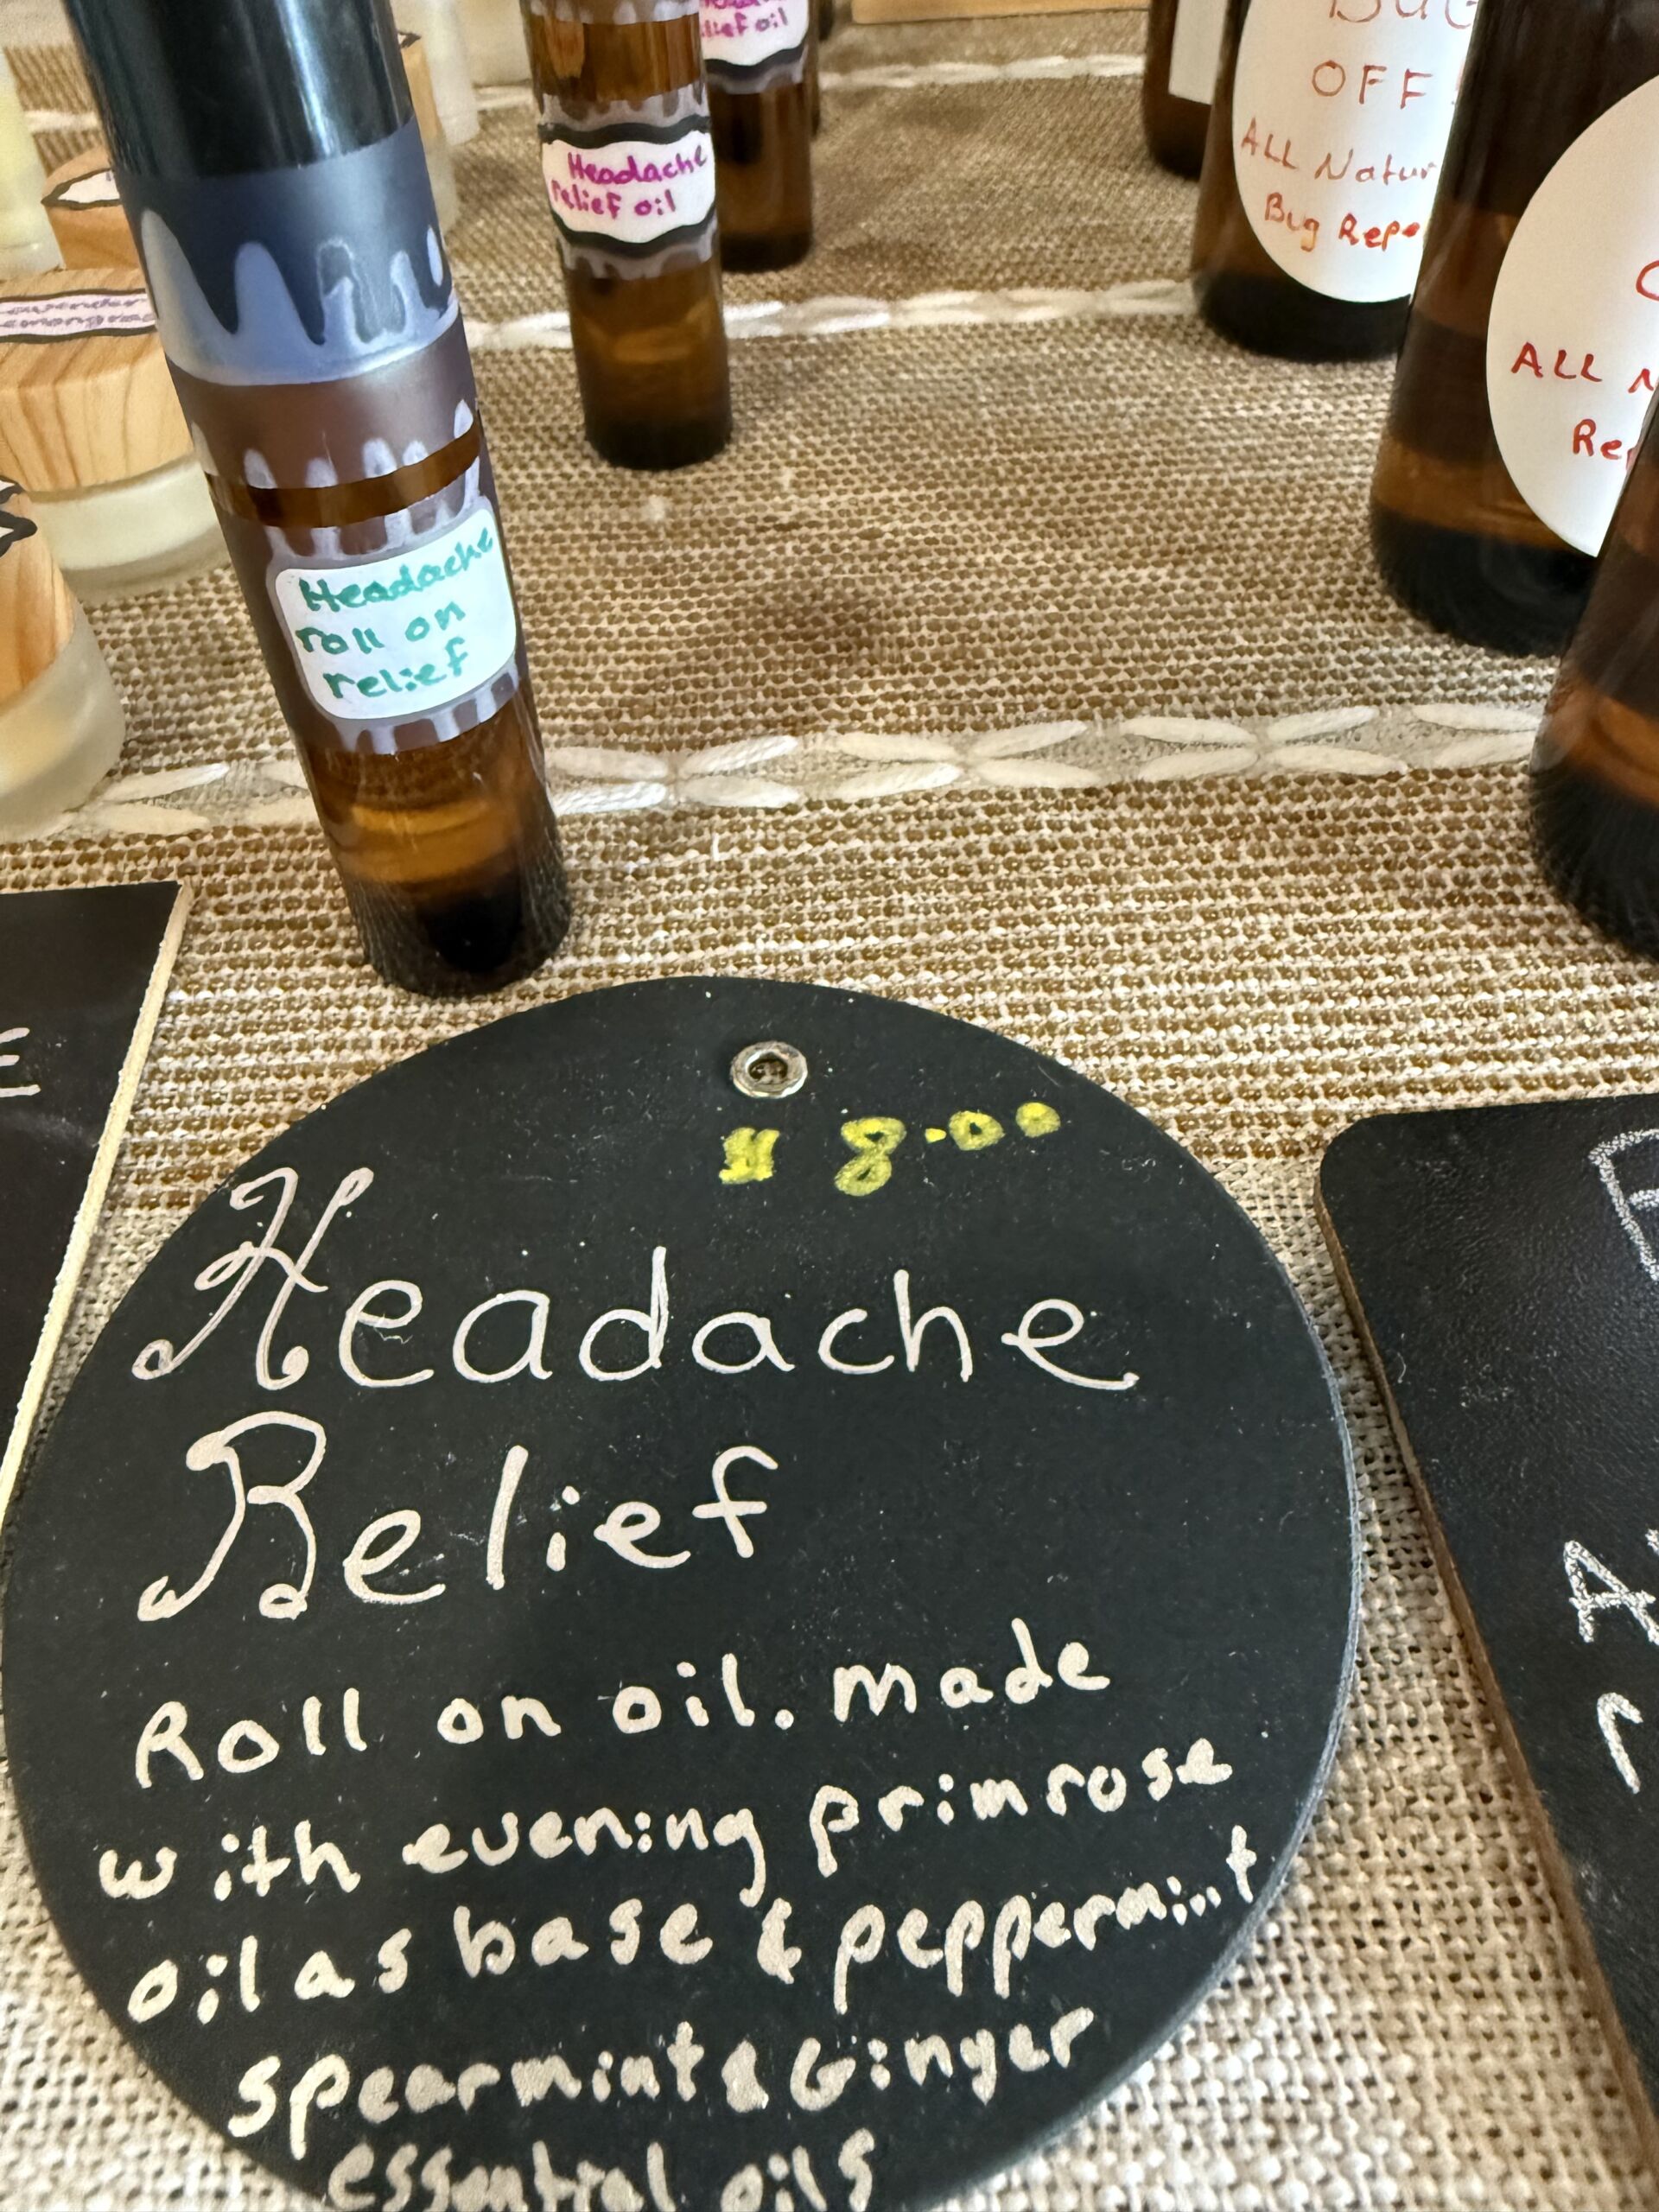 relief oil
Headache
relief oil
OFF
ALL
Bug
ALL
Headache
roll on
relief
$ 8.00
Headache
Relief
Roll on oil. made
with evening primrose
oil as base & peppermint
spearmint & Ginger
essential oils